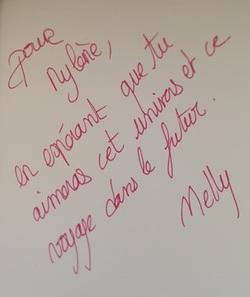 pour
Mylène,
en espérant que tu
aimeras cet univers et ce
voyage dans le futur.
Nelly